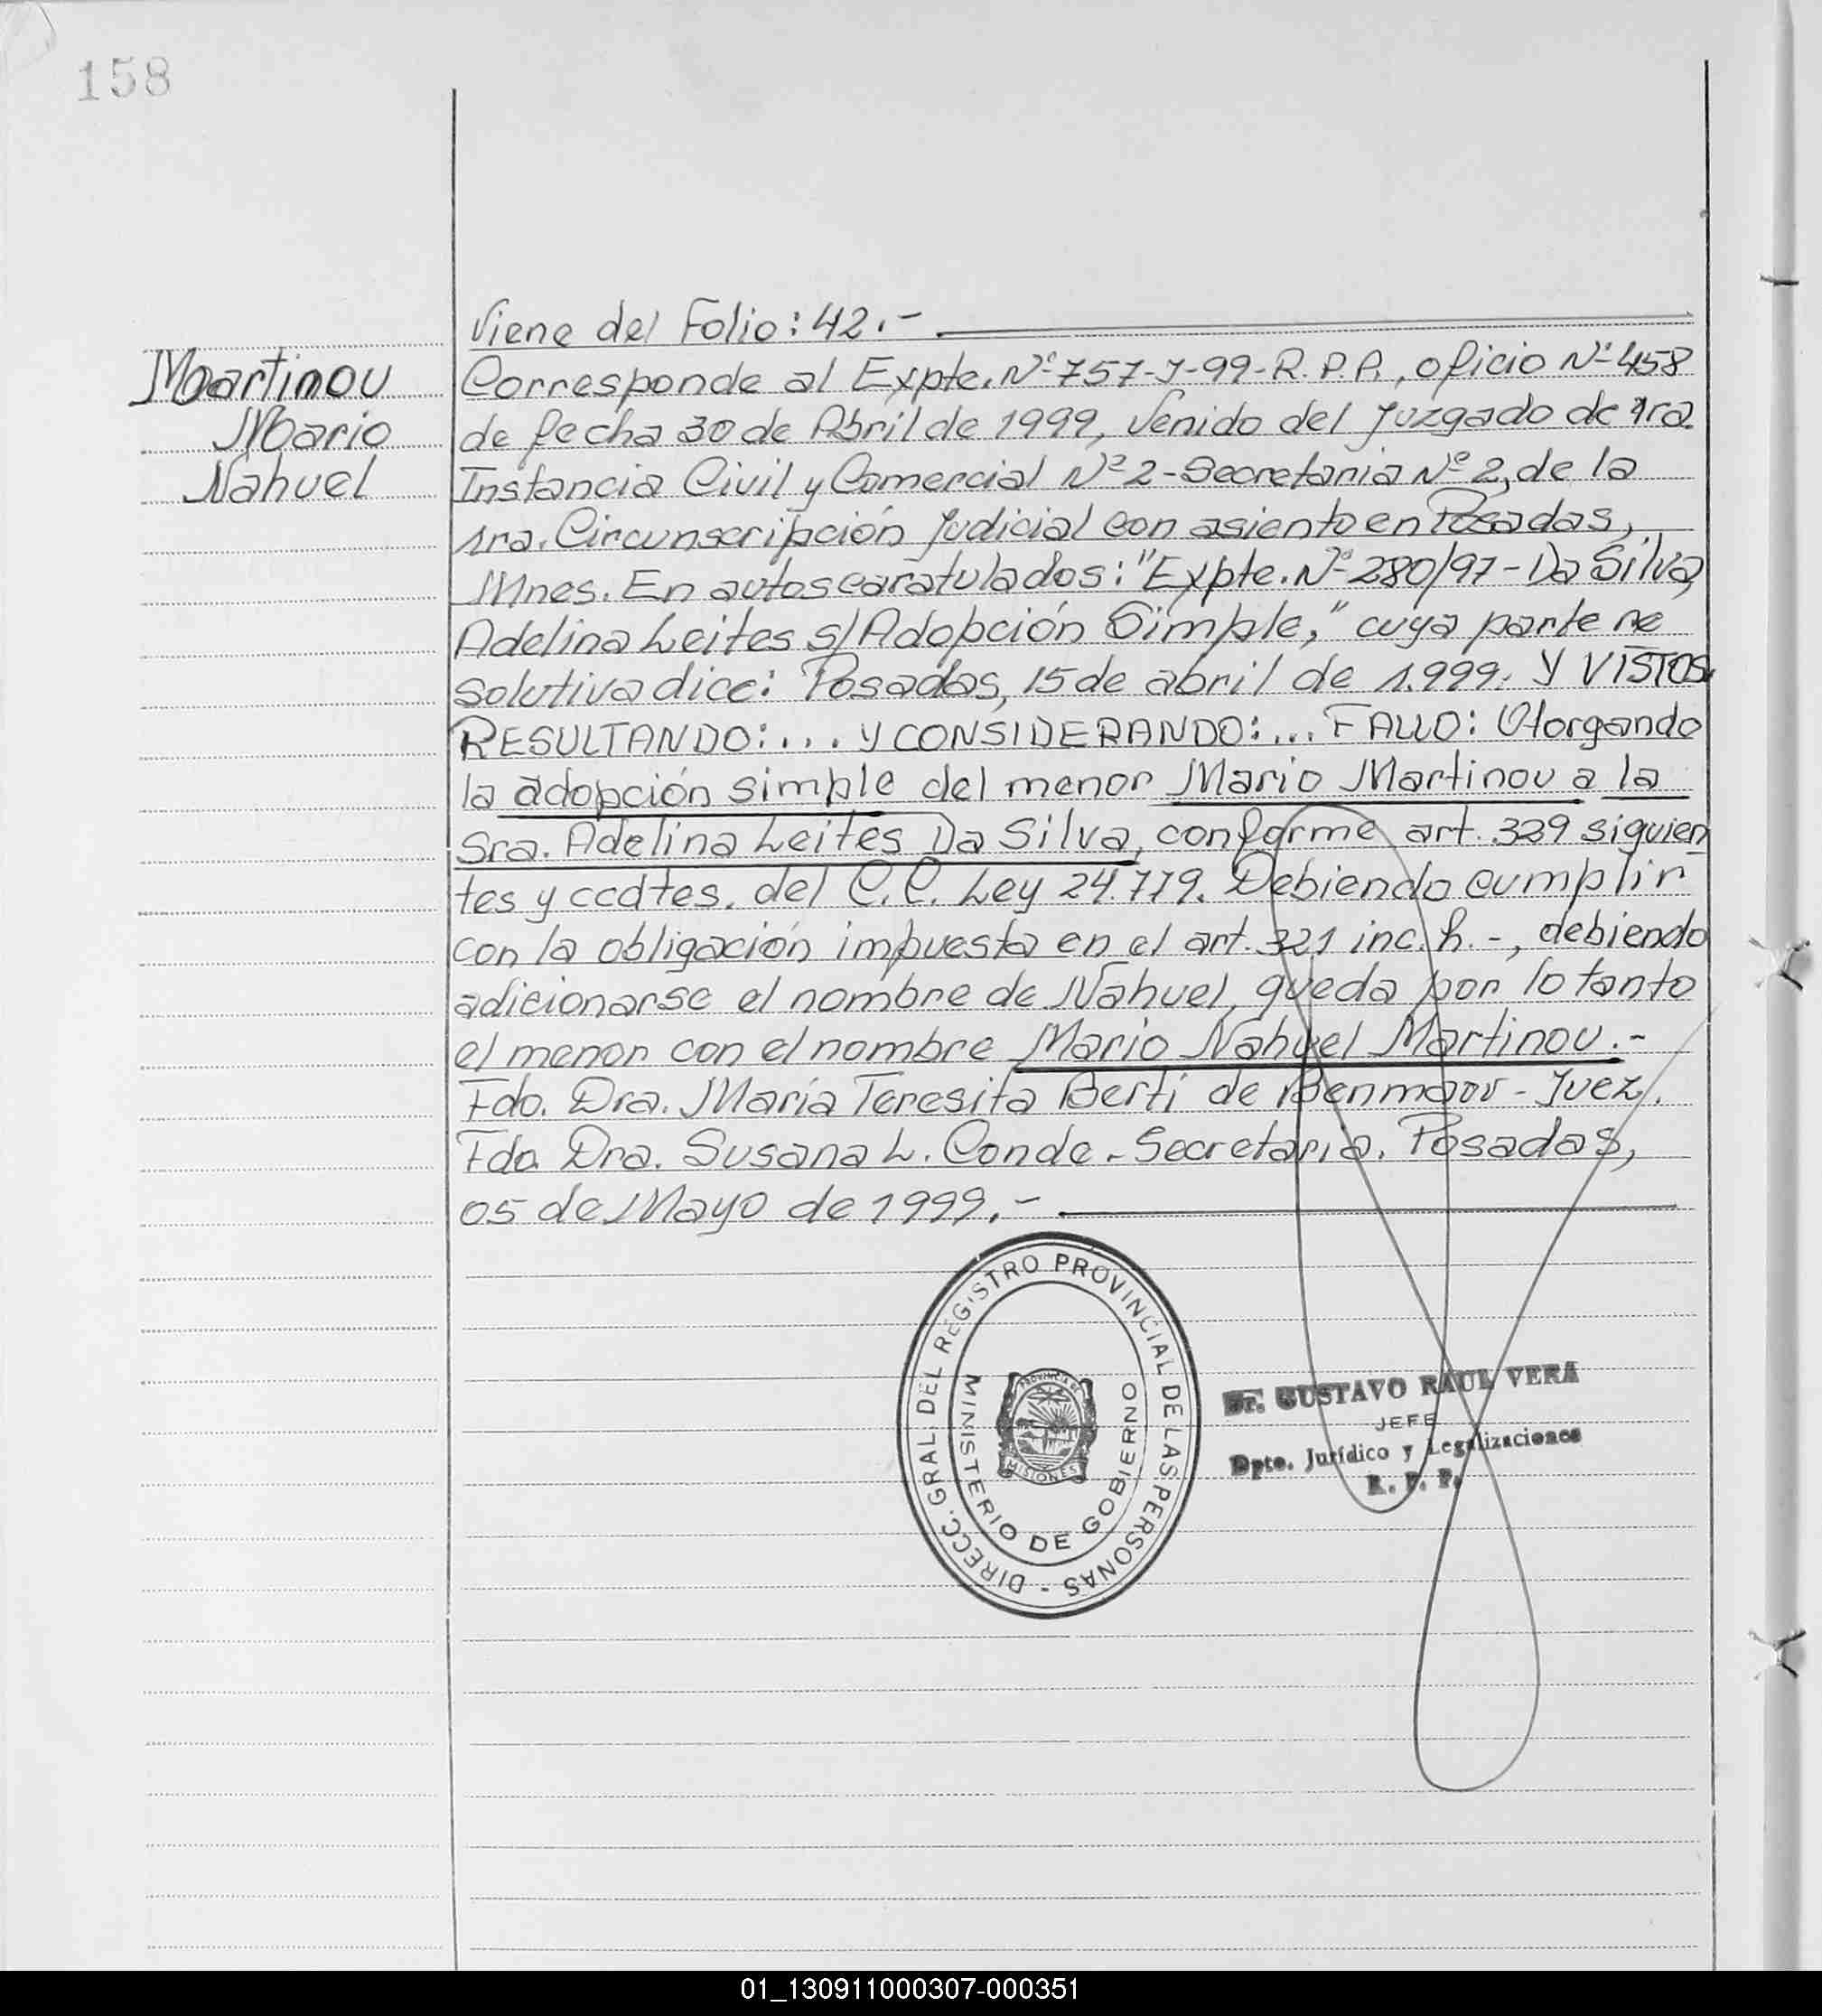 158
Viene del Folio: 42.-
Martinou
Mario
Nahuel
Corresponde al Expte. Nº 757-J-99-R.P.P., oficio Nº 458
de fecha 30 de Abril de 1999, venido del Juzgado de 1ra.
Instancia Civil y Comercial Nº 2-Secretaria Nº 2, de la
1ra. Circunscripción Judicial con asiento en Posadas,
Mnes. En autos caratulados: "Expte. Nº 280/97-Da Silva,
Adelina Leites s/Adopción Simple," cuya parte re
solutiva dice: Posadas, 15 de abril de 1.999. Y VISTOS.
RESULTANDO:... y CONSIDERANDO:... FALLO: Otorgando
la adopción simple del menor Mario Martinou a la
Sra. Adelina Leites Da Silva, conforme art. 329 siguien
tes y ccdtes. del C.C. Ley 24.779. Debiendo cumplir
con la obligación impuesta en el art. 321 inc. h.-, debiendo
adicionarse el nombre de Nahuel, queda por lo tanto
el menor con el nombre Mario Nahuel Martinou.-
Fdo. Dra. María Teresita Berti de Benmaor - Juez.
Fdo. Dra. Susana L. Conde - Secretaria. Posadas,
05 de Mayo de 1999.-
DIRECC. GRAL. DEL REGISTRO PROVINCIAL DE LAS PERSONAS -
MINISTERIO DE GOBIERNO
PROVINCIA DE
MISIONES
Dr. GUSTAVO RAUL VERA
JEFE
Dpto. Jurídico y Legalizaciones
R. P. P.
01_130911000307-000351